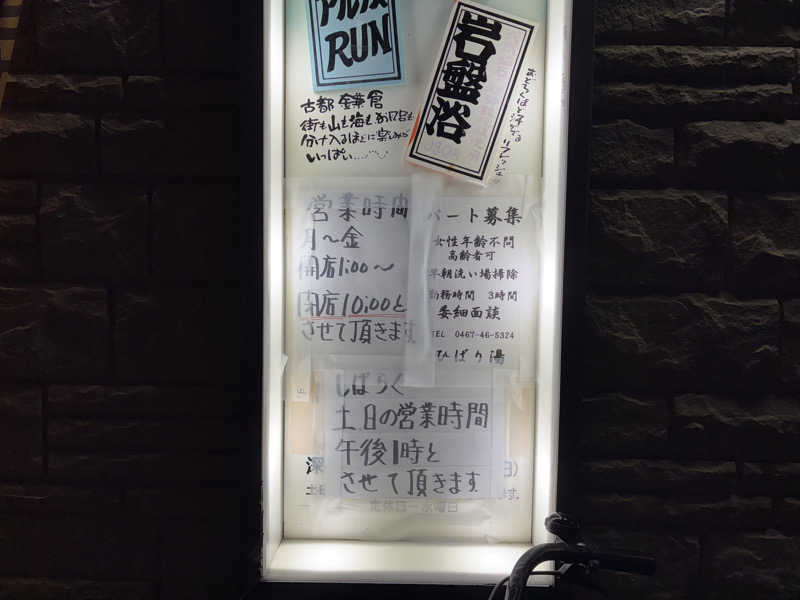 RUN
古都 鎌倉
いっぱい…
岩盤浴
営業時間
月～金
開店1:00～
閉店10:00と
させて頂きます
パート募集
女性年齢不問
高齢者可
早朝洗い場掃除
勤務時間 3時間
委細面談
TEL 0467-46-5324
ひばり湯
しばらく
土日の営業時間
午後1時と
させて頂きます
定休日ー水曜日